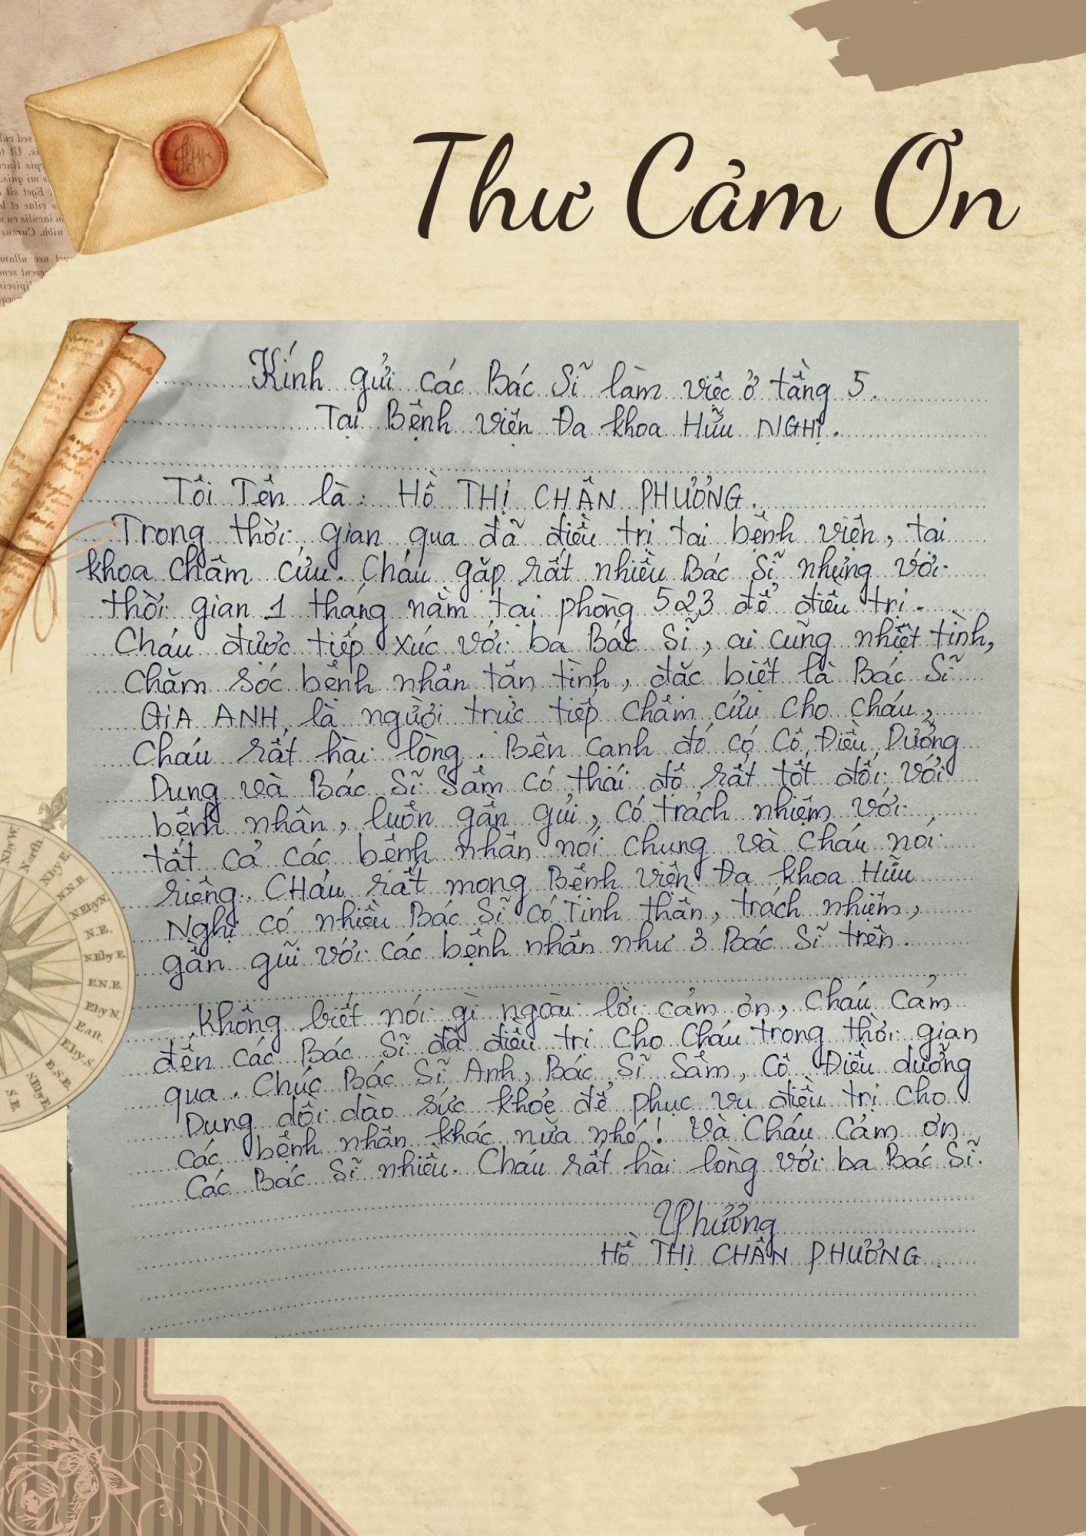 Thư Cảm Ơn
Kính gửi các Bác Sĩ làm việc ở tầng 5.
Tại Bệnh viện Đa khoa Hữu NGHỊ.
Tôi Tên là: HỒ THỊ CHÂN PHƯƠNG.
Trong thời gian qua đã điều trị tại bệnh viện, tại
khoa châm cứu. Cháu gặp rất nhiều Bác Sĩ nhưng với
thời gian 1 tháng nằm tại phòng 523 để điều trị.
Cháu được tiếp xúc với ba Bác Sĩ, ai cũng nhiệt tình,
chăm sóc bệnh nhân tận tình, đặc biệt là Bác Sĩ
GIA ANH là người trực tiếp châm cứu cho cháu,
Cháu rất hài lòng. Bên cạnh đó có Cô Điều Dưỡng
Dung và Bác Sĩ Sâm có thái độ rất tốt đối với
bệnh nhân, luôn gần gũi, có trách nhiệm với
tất cả các bệnh nhân nói chung và cháu nói
riêng. CHáu rất mong Bệnh viện Đa khoa Hữu
Nghị có nhiều Bác Sĩ có Tinh thần, trách nhiệm,
gần gũi với các bệnh nhân như 3 Bác Sĩ trên.
Không biết nói gì ngoài lời cảm ơn, cháu cảm
đến các Bác Sĩ đã điều trị cho cháu trong thời gian
qua. Chúc Bác Sĩ Anh, Bác Sĩ Sâm, Cô Điều dưỡng
Dung dồi dào sức khoẻ để phục vụ điều trị cho
các bệnh nhân khác nữa nhé! và Cháu Cảm ơn
Các Bác Sĩ nhiều. Cháu rất hài lòng với ba Bác Sĩ.
Phương
HỒ THỊ CHÂN PHƯƠNG.
North
Nby E.
N.N.E.
NEbyN.
N.E.
NEby E.
E.N.E.
Eby N.
East.
Eby S.
E.S.E.
SEbyE.
S.E.